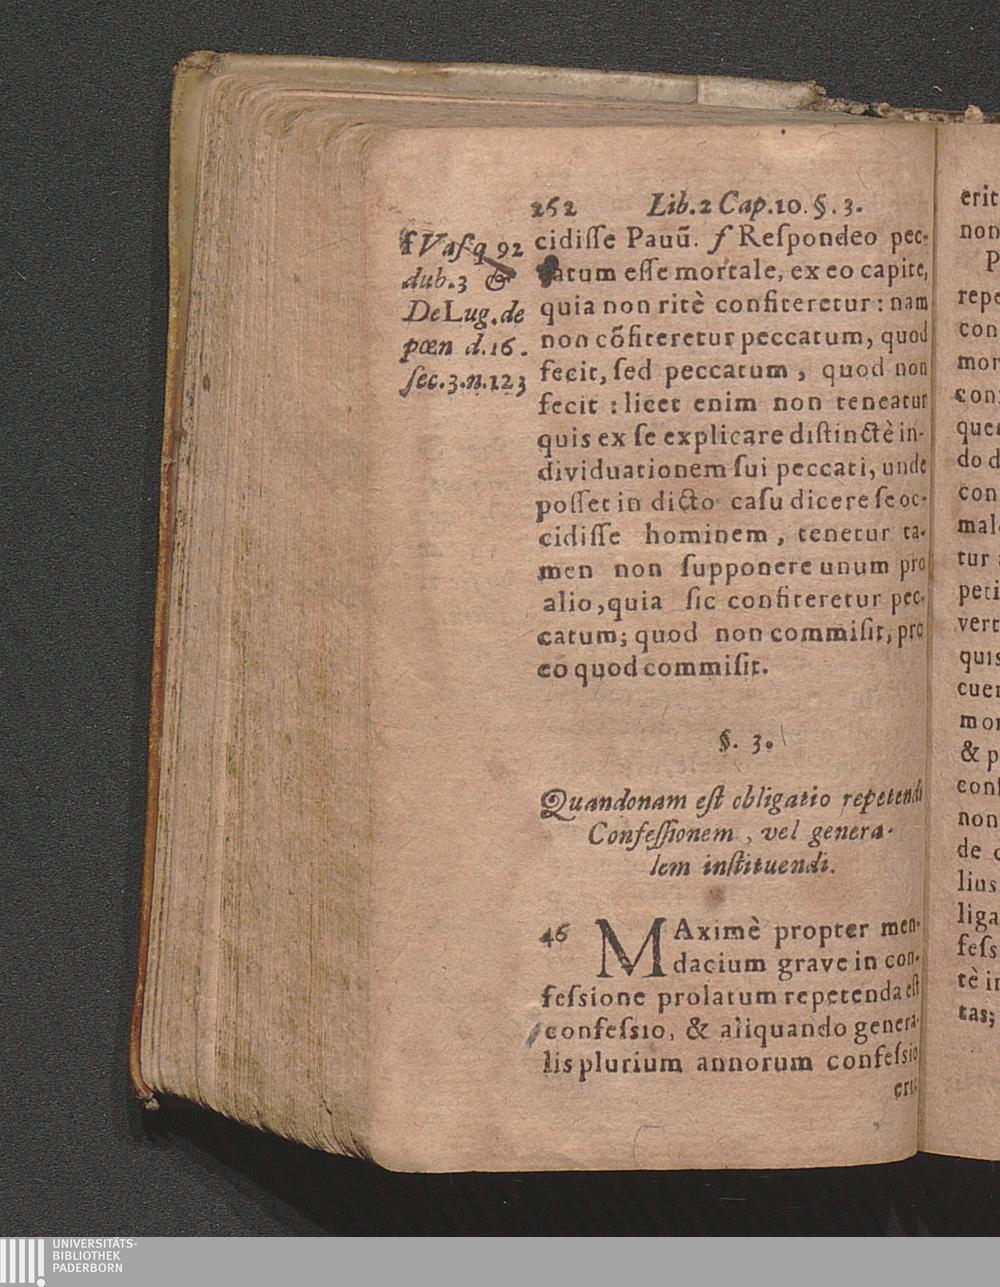 252 Lib.2 Cap.10. §. 3.
f Vaſq 92
dub.3 &
De Lug. de
pœn d.16.
ſec.3.n.123
cidiſſe Pauũ. f Reſpondeo pec-
catum eſſe mortale, ex eo capite,
quia non ritè confiteretur : nam
non cõfiteretur peccatum, quod
fecit, ſed peccatum, quod non
fecit : licet enim non teneatur
quis ex ſe explicare diſtinctè in-
dividuationem ſui peccati, unde
poſſet in dicto caſu dicere ſe oc-
cidiſſe hominem, tenetur ta-
men non ſupponere unum pro
alio, quia ſic confiteretur pec-
catum; quod non commiſit, pro
eo quod commiſit.
§. 3.
Quandonam eſt obligatio repetendi
Confeſſionem, vel genera-
lem inſtituendi.
46 MAximè propter men-
dacium grave in con-
feſsione prolatum repetenda eſt
confeſsio, & aliquando genera-
lis plurium annorum confeſsio
erit
erit
non
P
repe
con
mor
con
que
do d
con
mal
tur
peti
vert
quis
cue
mor
& p
conf
non
de c
lius
liga
feſs
tè in
tas;
UNIVERSITÄTS-
BIBLIOTHEK
PADERBORN